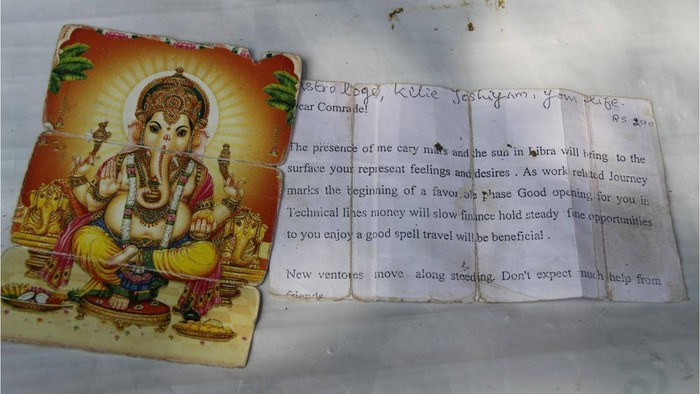 Astrologe, Kilie Joshiyam, your life.
Rs 200
Dear Comrade!
The presence of me cary mars and the sun in Libra will bring to the
surface your represent feelings and desires . As work related Journey
marks the beginning of a favorable phase Good opening for you in
Technical lines money will slow finance hold steady fine opportunities
to you enjoy a good spell travel will be beneficial .
New ventores move along steeding. Don't expect much help from
friends